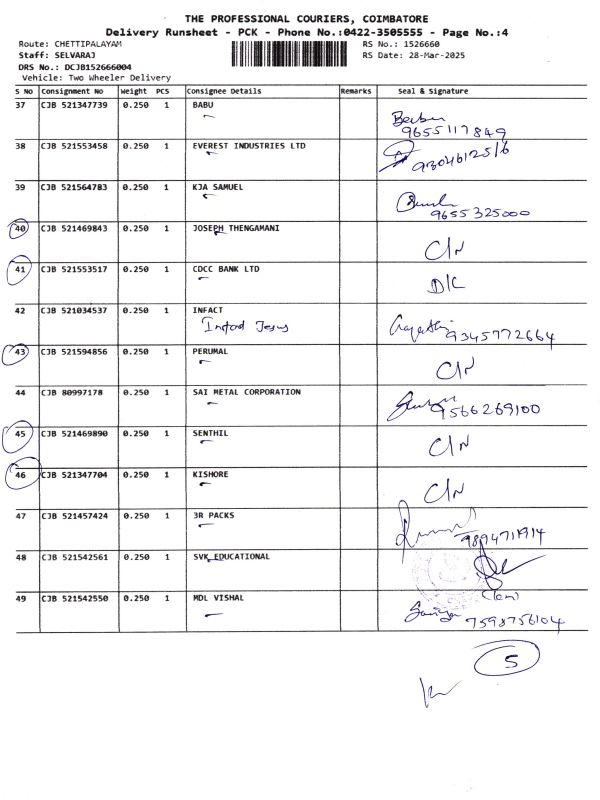 THE PROFESSIONAL COURIERS, COIMBATORE
Delivery Runsheet - PCK - Phone No.:0422-3505555 - Page No.:4
Route: CHETTIPALAYAM RS No.: 1526660
Staff: SELVARAJ RS Date: 28-Mar-2025
DRS No.: DCJB152666004
Vehicle: Two Wheeler Delivery
S No Consignment No Weight PCS Consignee Details Remarks Seal & Signature
37 CJB 521347739 0.250 1 BABU
9655117849
38 CJB 521553458 0.250 1 EVEREST INDUSTRIES LTD
9304612516
39 CJB 521564783 0.250 1 KJA SAMUEL
9655325000
40 CJB 521469843 0.250 1 JOSEPH THENGAMANI
C/N
41 CJB 521553517 0.250 1 CDCC BANK LTD
D/C
42 CJB 521034537 0.250 1 INFACT
Infact Jesus 9345772664
43 CJB 521594856 0.250 1 PERUMAL
C/N
44 CJB 80997178 0.250 1 SAI METAL CORPORATION
9566269100
45 CJB 521469890 0.250 1 SENTHIL
C/N
46 CJB 521347704 0.250 1 KISHORE
C/N
47 CJB 521457424 0.250 1 3R PACKS
9894711914
48 CJB 521542561 0.250 1 SVK EDUCATIONAL
49 CJB 521542550 0.250 1 MDL VISHAL
7598756104
5